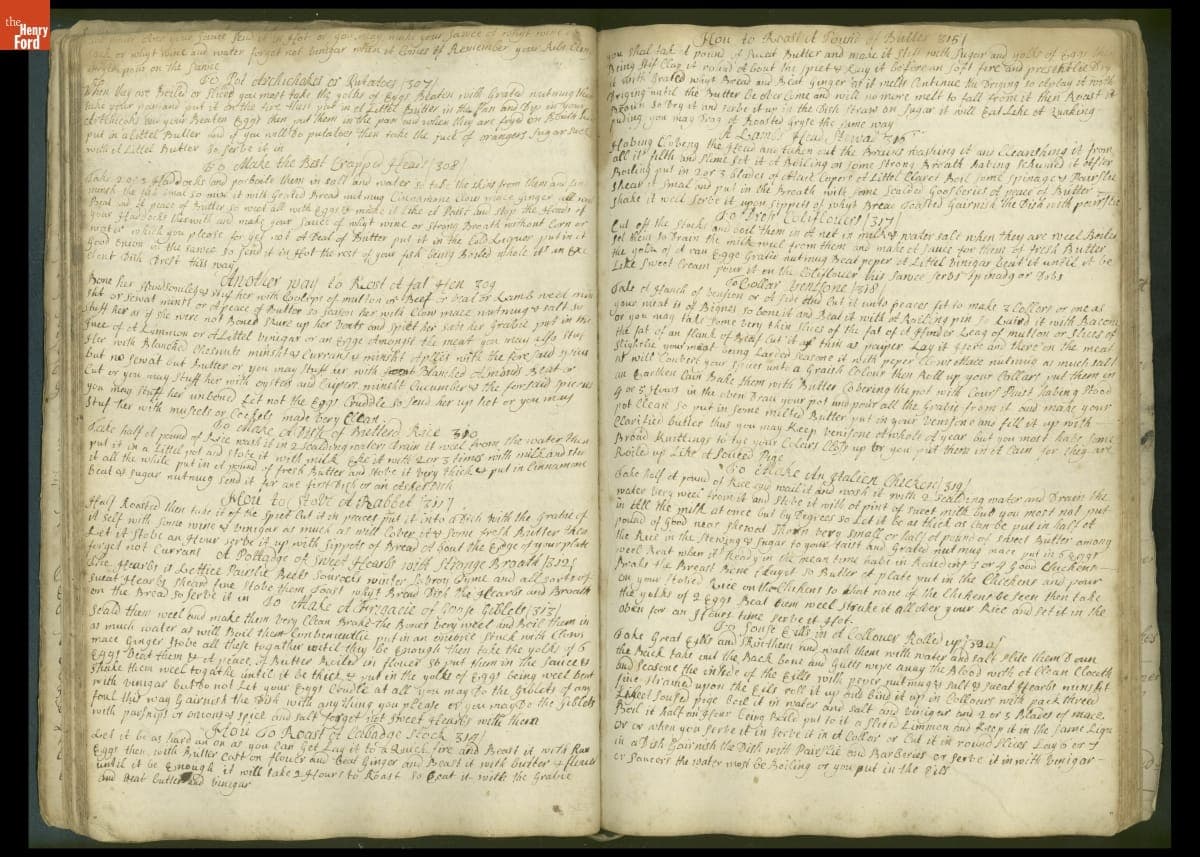 the
Henry
Ford
your Sauce Send it in Hot or you may make your Sauce of whyt wine
or whyt wine and water forget not vinigar when it Comes to Remember your
on the Sance
To Pot Artichakes or Putatoes 307/
When they are Boiled or Sliced you most take the yolks of Eggs Beaten with Grated nutmug then
take your pan and put it on the fire then put in a Littel Butter in the Pan and Dip in your
Artichoks in your Beaten Eggs then put them in the pan and when they are fryed on Boath Sides
put in a Littel Butter and if you will Do putatoes then take the Juce of oranges Sugar Sack
with a Littel Butter So Serve it in
To Make the Best Crapped Heads 308/
Take 2 or 3 Haddocks and parboile them in salt and water so take the skins from them and
minsh the fish smal so mix it with Grated Bread nutmug Cinnamone Clow mace ginger all well
Beat and a peace of Butter so weet all with Eggs & make it Like a Past and stop the Heads of
your Haddocks therewith and make your Sauce of whyt wine or strong Broath without Corn or
water which you please for get not a Deal of Butter put it in the Said Liquor put in a
Good onion in the Sauce so Send it in Hot the rest of your fish being Boiled whole it is an Exc
elent Dish Drest this way
Another way to Rost a fat Hen 309
Bone her Handsomely & Stuf her with Coolops of mutton or Beef or Veal or Lamb weel min
sht or Sewat minst or a peace of Butter so seasen her with Clow mace nutmug & salt so
stuff her as if she were not Boned Skure up her vents and Spiet her save her Gravie put in the
Juce of a Limmon or a Littel Vinigar or an Egge Amongst the meat you may also stuf
Her with Blanched Chesnuts minsht & Currans & minsht Apples with the fore said spices
but no Sewat but Butter or you may stuff her with Blanched Almonds Beat or
Cut or you may Stuff her with oysters and Capers minsht Cucumber & the forsaid Spices
you may stuff her unboned Let not the Eggs Cruddle so Send her up hot or you may
Stuf her with mussels or Cockels made very Clean
To Make a Dish of Butterd Rice 310
Take half a pound of Rice wash it in 2 scalding waters Drain it weel from the water then
put it in a Littel pot and Stove it with milk Eke it with 2 or 3 times with milk and stir
it all the while put in a pound of fresh Butter and Stove it very thick & put in Cinnamone
beat & sugar nutmug Send it for ane first Dish or an after Dish
How to Stove a Rabbet /311/
Half Roasted then take it of the Spiet Cut it in peaces put it into a Dish with the Gravie of
it self with some wine & vinigar as much as will Cover it & some fresh Butter then
Let it Stove an Hour serve it up with Sippets of Bread about the Edge of your plate
forget not Currans
A Pottadge of Sweet Hearbs with Stronge Broath /312/
The Hearbs is Lettice Parslie Beets Sourocks winter Savory Tyme and all sorts of
Sweat Hearbs Sheard fine Stove them Toast whyt Bread Dish the Hearbs and Broath
on the Bread so serve it in
To Make a Frigacie of Goose Giblets /313/
Scald them weel and make them very Clean Brake the Bones very weel and Boil them in
as much water as will Boil them Conveniently put in an onion Stuck with Clows
mace Ginger Stove all these together untill they be Enough then take the yolks of 6
Eggs Beat them & a peace of Butter Roiled in flower so put them in the Sauce &
Shake them weel togethe untill it be thick & put in the yolks of Eggs being weel beat
with vinigar but Do not Let your Eggs Crudle at all you may Do the Giblets of any
foul this way Gairnish the Dish with anything you please or you may Do the Gillets
with parsnips or onions & spice and salt forget not Sweet Hearbs with them
How To Roast a Cabadge Stock 314/
Let it be as hard an on as you can Get Lay it to a Quick fire and Beast it with Raw
Eggs then with Butter Cast on flower and Beat Ginger and Beast it with butter & flower
until it be Enough it will take 2 Hours to Roast So Eeat it with the Gravie
and Beat butter and vinigar
How to Roast a Pound of Butter 315/
you shal tak a pound of Sweat Butter and make it Stif with Sugar and yolks of Eggs then
Being Stif Clap it round about the spiet & Lay it before an Soft fire and presentlie Drig
it with Grated whyt Bread and Beat ginger as it melts Continue the Driging so aplay it with
Driging until the Butter be over Come and will no more melt to fall from it then Roast it
Broun so Dry it and serve it up in the Dish strawd on Sugar it will Eat Like a Quaking
puding you may Drag a Roasted Gryse the same way
A Lambs Head Way 316
Having Cloveng the Head and taken out the Brains washing it and Clearsthing it from
all it's filth and Slime Set it a Boiling or some strong Breath Having Schumed it after
Boiling put in 2 or 3 blades of Mact Capers a Littel Claret Boil some spinage & Parslie
Shear it Smal and put in the Breath with some Scalded Goosberies a peace of Butter
shake it weel Serve it upon Sippets of whyt Bread Toasted Gairnish the Dish with parslie
To Dress Coliflower /317/
Cut off the Stocks and boil them in a net in milk & water salt when they are weel Boiled
Set them to Drain the milk weel from them and make a Sauce for them a fresh Butter
the yolk of a raw Egge Gratie nutmug Beat peper a Littel Vinigar beat it until it be
Like Sweet Cream pour it on the Coliflower this Sauce Serves Spinadg or Pobs
To Collar Venisone /318/
Take a Hanch of venison or a Side and Cut it unto peaces fit to make 3 Collers or one as
your meat is of Bignes so bone it and Beat it with a Rolling pin & Laird it with Bacone
or you may take some very thin slices of the fat of a Hinder Leag of mutton or slices of
the fat of an flank of Beif Cut it as thin as paiper Lay it Here and there on the meat
Slightlie your meat being Larded seasone it with peper Clow & mace nutmug as much salt
as will Convert your spices unto a Grayish Colour then Roll up your Collars put them in
an Earthen Can Bake them with Butter Covering the pot with Cours Paist Having Stood
4 or 5 Hours in the oven Draw your pot and pour all the Gravie from it and make your
pot Clean so put in some milted Butter put in your Venisone and fill it up with
Clarified butter thus you may keep venisone a whole of year but you most have some
Broad Knitlings to tye your Colars Closs up or you put them in a Can for they are
Roiled up Like a Souced Pige
To Make An Italien Chicken /319/
Take half a pound of Rice wail it and wash it with 2 Scalding water and Drain the
water very weel from it and Stove it with a pint of sweet milk but you most not put
in all the milk at once but by Degrees so Let it be as thick as Can be put in half a
pound of Good near Skewed Thorn very small or half a pound of Sweet Butter among
the Rice in the Stewing & Sugar to your taist and Grated nutmug mace put in 6 Eggs
weel Beat when it Ready in the mean time have in Readeines 3 or 4 Good Chickens
Brake the Breast Bone & so Butter a plate put in the Chickens and pour
on your Stoved Rice on the Chickens so that none of the Chickens be seen then take
the yolks of 2 Eggs Beat them weel strake it all over your Rice and set it in the
oven for an Hours time serve it Hot
To Souse Eills in a Collouer Rolled up /320/
Take Great Eills and Skin them and wash them with water and salt slite them Down
the back take out the Back bone and Gutts wipe away the Blood with a Clean Cloath
and Seasone the inside of the Eills with peper nutmug & salt & sweat Hearbs minsht
fine strawed upon the Eills roll it up and bind it up in Collours with pack threed
Liket Soused pige boil it in water and salt and Vinigar and 2 or 3 Blades of mace
Boil it half an Hour being boild put to it a Sliced Limmon and keep it in the Same Liqu
or & when you serve it in serve it in a Collar or Cut it in round Slices Lay 6 or 7
in a Dish Gairnish the Dish with Parslie and Barberies or serve it in with Vinigar
er Saucers the water most be Boiling or you put in the Eills